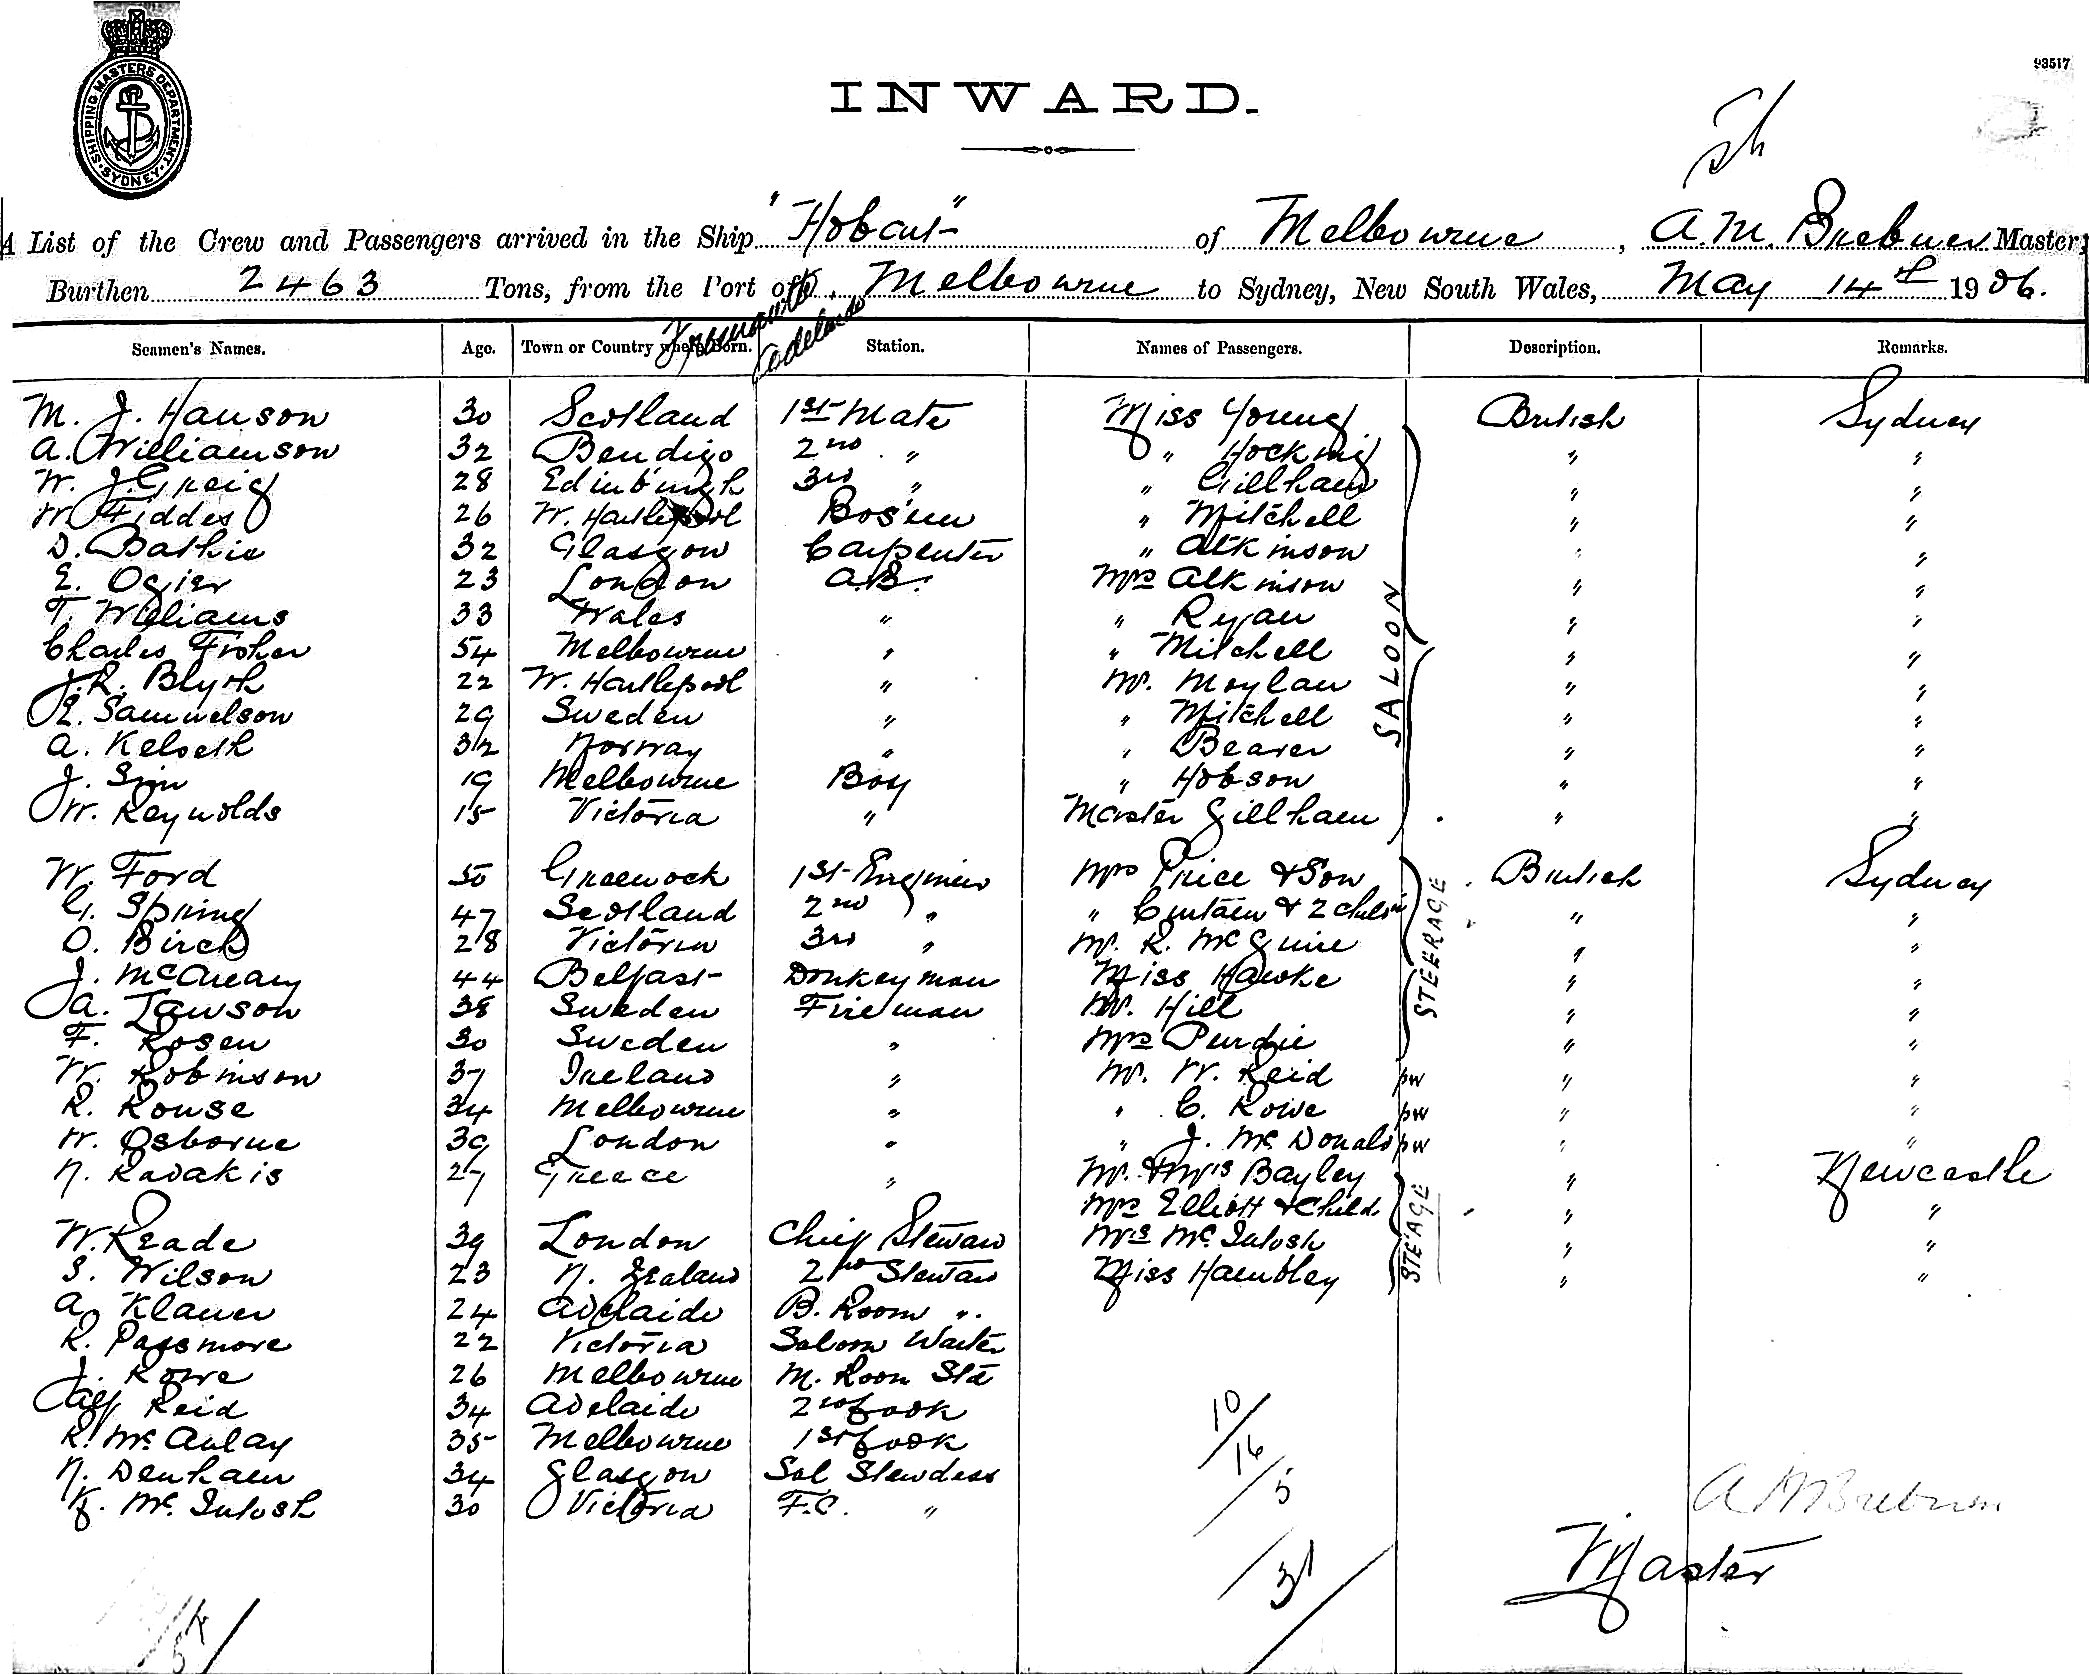 SHIPPING MASTERS DEPARTMENT · SYDNEY ·
93517
INWARD.
A List of the Crew and Passengers arrived in the Ship "Hobart" of Melbourne, A. M. Brebner Master,
Burthen 2463 Tons, from the Port of Melbourne to Sydney, New South Wales, May 14th 1906.
Fremantle
Adelaide
Seamen's Names. Age. Town or Country where Born. Station. Names of Passengers. Description. Remarks.
M. J. Hanson 30 Scotland 1st Mate Miss Young British Sydney
A. Williamson 32 Bendigo 2nd " " Hocking " "
W. J. Greig 28 Edinburgh 3rd " " Gillham " "
W. Fiddes 26 W. Hartlepool Bos'un " Mitchell " "
D. Bathie 32 Glasgow Carpenter " Atkinson " "
E. Ogier 23 London A.B. Mrs Atkinson " "
T. Williams 33 Wales " " Ryan " "
Charles Fisher 54 Melbourne " " Mitchell " "
J. R. Blyth 22 W. Hartlepool " Mr. Moylan " "
E. Samuelson 29 Sweden " " Mitchell " "
A. Kelseth 32 Norway " " Beaver " "
J. Sim 19 Melbourne Boy " Hobson " "
W. Reynolds 15 Victoria " Master Gillham " "
SALOON
W. Ford 50 Greenock 1st Engineer Mrs Price & Son British Sydney
G. Spring 47 Scotland 2nd " " Curtain & 2 " "
O. Birch 28 Victoria 3rd " Mr. R. McGuire " "
J. McCreary 44 Belfast Donkeyman Miss Hawke " "
A. Lawson 38 Sweden Fireman Mr. Hill " "
F. Rosen 30 Sweden " Mrs Purdie " "
STEERAGE
W. Robinson 37 Ireland " Mr. W. Reid pw " "
R. Rouse 34 Melbourne " " C. Rowe pw " "
W. Osborne 39 London " " J. McDonald pw " "
N. Radakis 27 Greece " Mr. & Mrs Bayley " Newcastle
Mrs Elliott & Child " "
W. Reade 39 London Chief Steward Mrs McIntosh " "
S. Wilson 23 N. Zealand 2nd Steward Miss Hambley " "
STE'AGE
A. Klauer 24 Adelaide B. Room "
R. Passmore 22 Victoria Saloon Waiter
J. Rowe 26 Melbourne M. Room Std
Alf Reid 34 Adelaide 2nd Cook
R. McAulay 35 Melbourne 1st Cook
N. Denham 34 Glasgow Sal Stewdess
K. McIntosh 30 Victoria F.C. "
10/
16/
5
31/
A M Brebner
Master